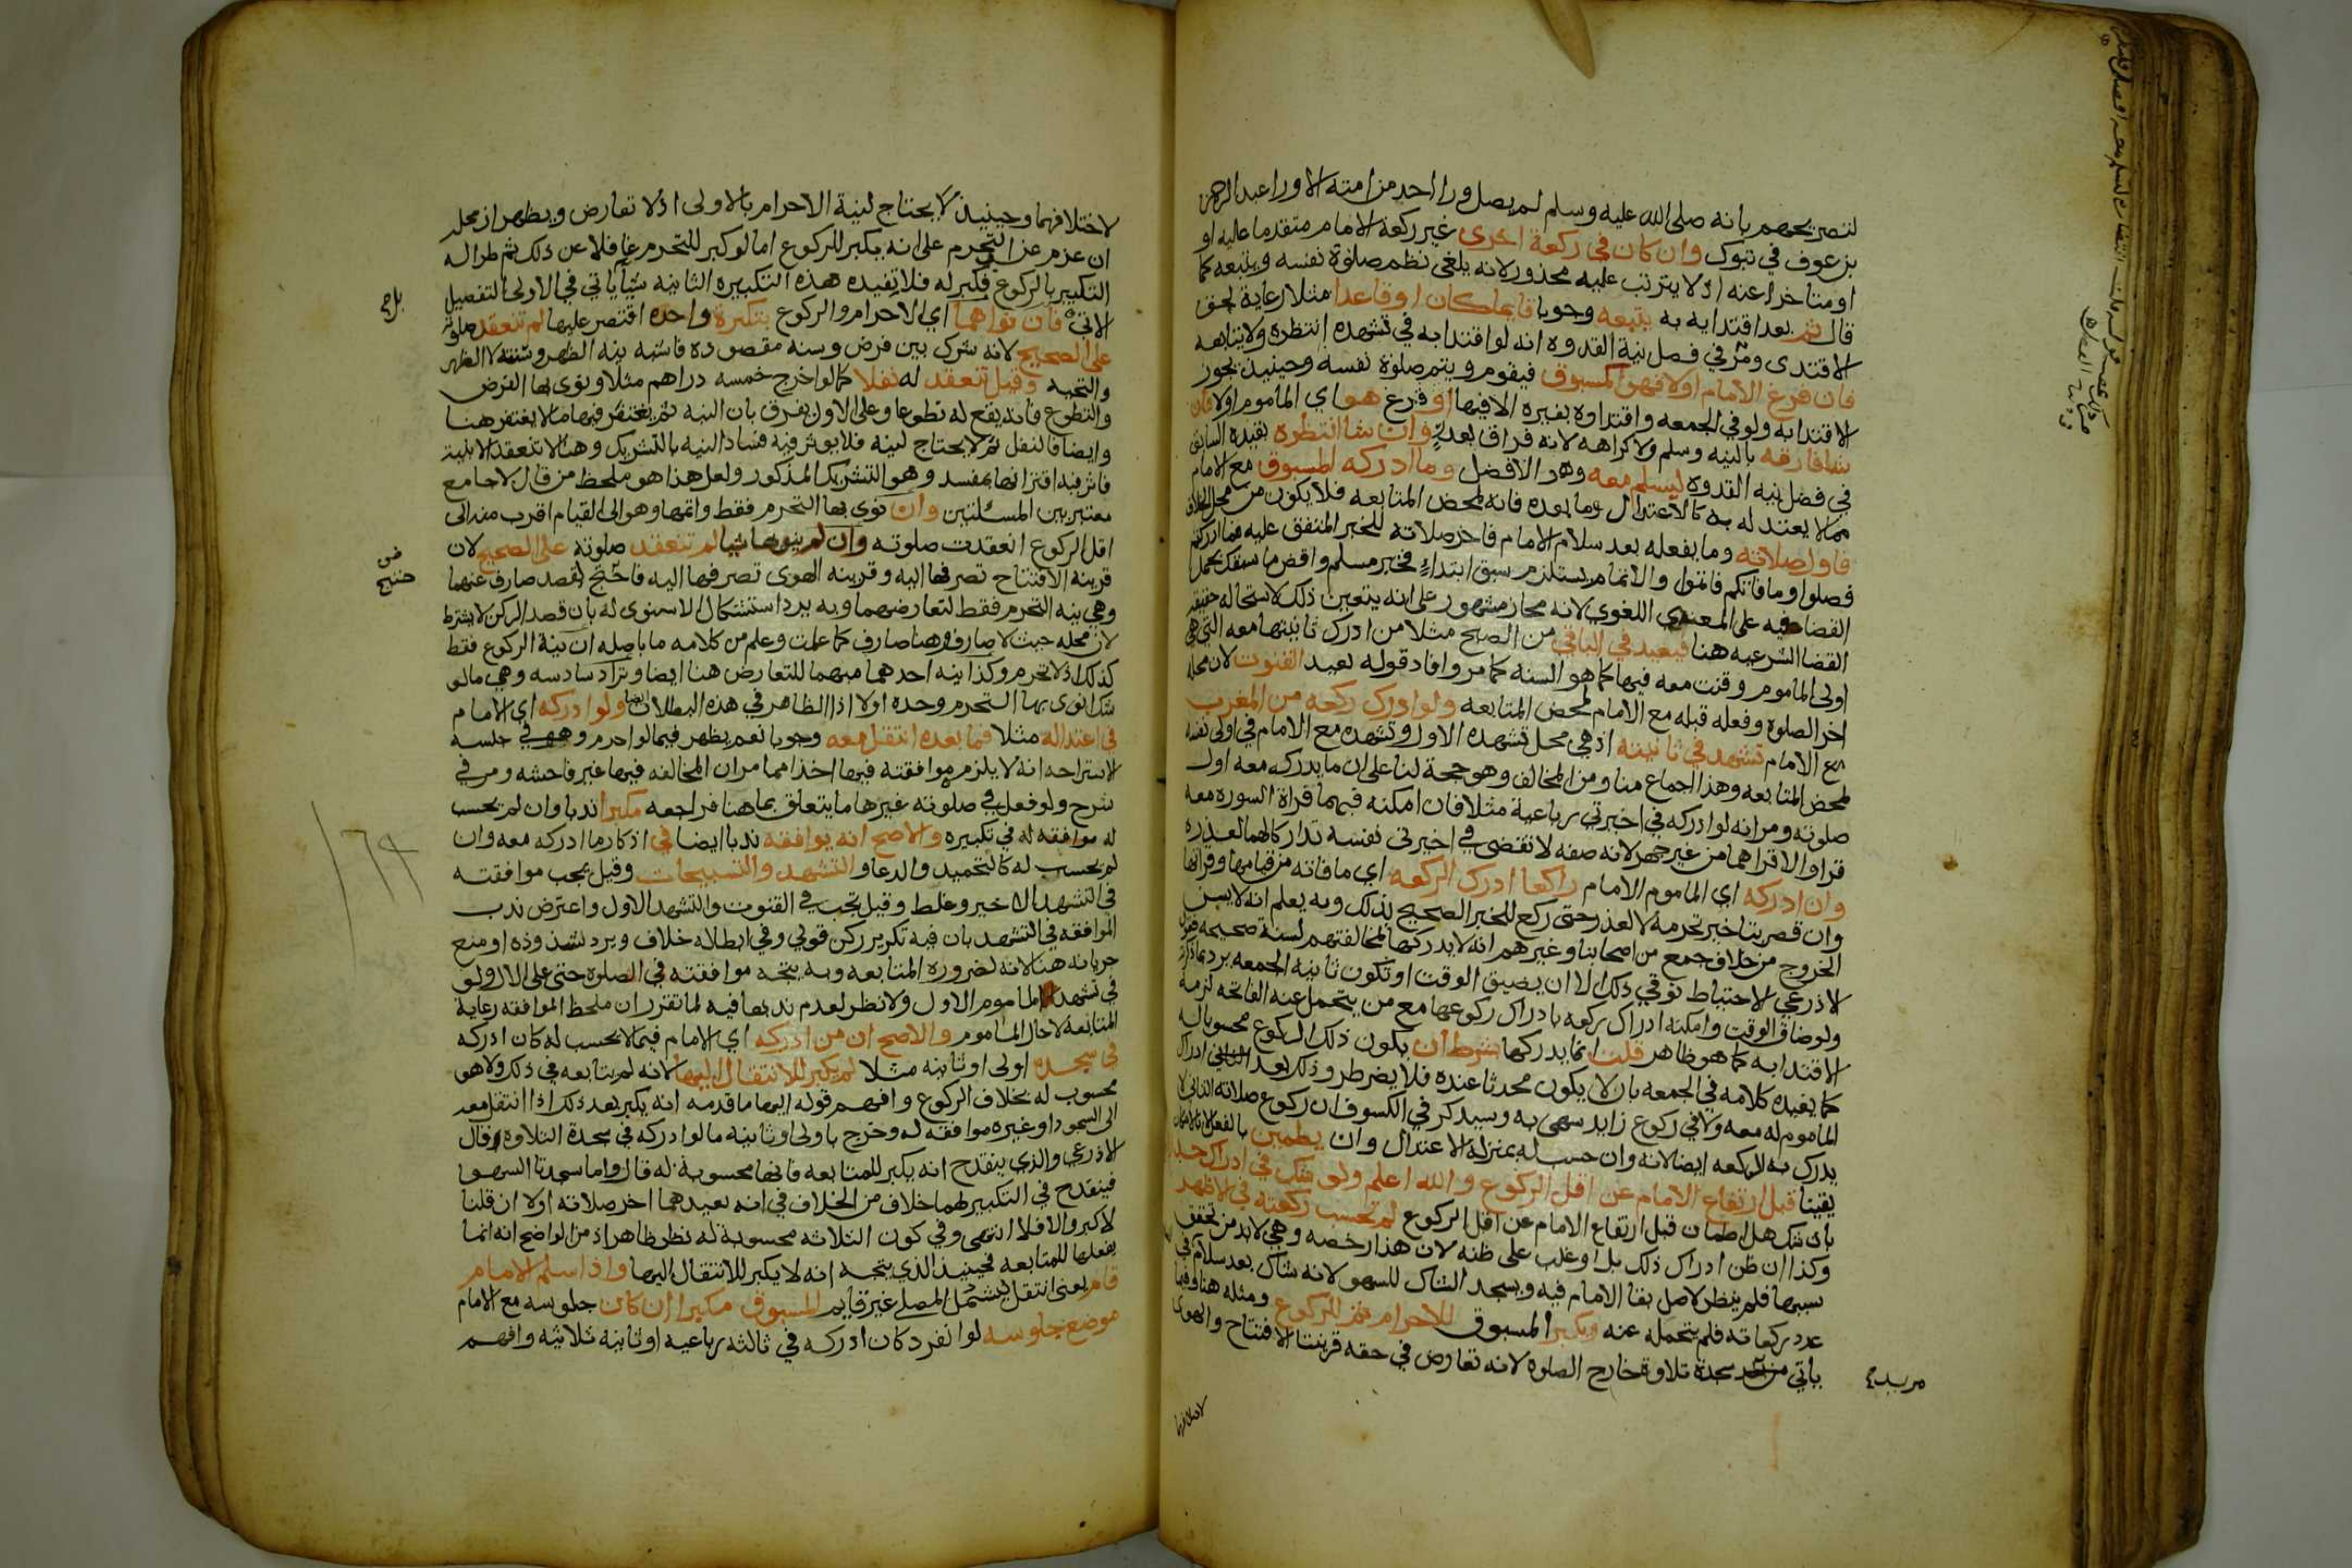 لتصريحهم بانه صلى الله عليه وسلم لم يصل ورا احد من امته الا ورا عبد الرحمن
بن عوف في تبوك وان كان في ركعة اخرى غير ركعة الامام متقدما عليه او
او متاخرا عنه اذ لا يترتب عليه محذور لانه يلغى نظم صلوة نفسه ويتبعه كما
قال ثم بعد اقتدايه به يتبعه وجوبا قايما كان او قاعدا مثلا رعاية لحق
الاقتدى ومر في فصل نية القدوه انه لو اقتدا به في تشهده انتظره ولا يتابعه
فان فرغ الامام اولا فهو كمسبوق فيقوم ويتم صلوة نفسه وحينيذ يجوز
الاقتدا به ولو في الجمعه واقتداوه بغيره الا فيها او فرغ هو اي الماموم اولا فان
شا فارقه بالنيه وسلم ولا كراهه لانه فراق بعذر وان شا انتظره بقيده السابق
في فصل نيه القدوه ليسلم معه وهو الافضل وما ادركه المسبوق مع الامام
مما لا يعتد له به كالاعتدال وما بعده فانه لمحض المتابعه فلا يكون من محل الخلاف
فاول صلاته وما يفعله بعد سلام الامام فاخر صلاته للخبر المتفق عليه فما ادركتم
فصلوا وما فاتكم فاتموا والاتمام يستلزم سبق ابتداء فخبر مسلم واقض ما سبقك يحمل
القضا فيه على المعنى اللغوي لانه مجاز مشهور على انه يتعين ذلك لاستحاله حقيقه
القضا الشرعيه هنا فيعيد في الباقي من الصبح مثلا من ادرك ثانيتها معه التي هي
اولى الماموم وقنت معه فيها كما هو السنه كما مر وافاد قوله يعيد القنوت لان محله
اخر الصلوه وفعله قبله مع الامام لمحض المتابعه ولو ادرك ركعه من المغرب
مع الامام تشهد في ثانيته اذ هي محل تشهده الاول وتشهده مع الامام في اولى نفسه
لمحض المتابعه وهذا اجماع منا ومن المخالف وهو حجة لنا على ان ما يدركه معه اول
صلوته ومر انه لو ادركه في اخيرتي رباعية مثلا فان امكنه فيهما قراة السوره معه
قرا والا قراهما من غير جهر لانه صفه لا تقضى في اخيرتي نفسه تداركا لهما لعذره
وان ادركه اي الماموم الامام راكعا ادرك الركعه اي ما فاته من قيامها وقراتها
وان قصر بتاخير تحرمه لا لعذر حتى ركع للخبر الصحيح لذلك وبه يعلم انه لا يسن
الخروج من خلاف جمع من اصحابنا وغيرهم انه لا يدركها لمخالفتهم لسنة صحيحه
لاذرعي الاحتياط توقي ذلك الا ان يضيق الوقت او تكون ثانيه الجمعه يرد بما ذكرته
ولو ضاق الوقت وامكنه ادراك ركعه بادراك ركوعها مع من يتحمل عنه الفاتحه لزمه
الاقتدا به كما هو ظاهر قلت انما يدركها بشرط ان يكون ذلك الركوع محسوبا له
كما يفيده كلامه في الجمعه بان لا يكون محدثا عنده فلا يضر طرو ذلك بعد
الماموم له معه ولا في ركوع زايد سهى به وسيدكر في الكسوف ان ركوع صلاته الثاني لا
يدرك به الركعه ايضا لانه وان حسب له بمنزله الاعتدال وان يطمين بالفعل
يقينا قبل ارتفاع الامام عن اقل الركوع والله اعلم ولو شك في ادراك
بان شك هل اطمان قبل ارتفاع الامام عن اقل الركوع لم تحسب ركعته في الاظهر
وكذا ان ظن ادراك ذلك بل او غلب على ظنه لان هذا رخصه وهي لابد من تحقق
سببها فلم ينظر لاصل بقا الامام فيه ويسجد الشاك للسهو لانه شاك بعد سلام
عدد ركعاته فلم يتحمله عنه ويكبر المسبوق للاحرام ثم للركوع ومثله هنا وفيما
ياتي سجدة تلاوة خارج الصلوه لانه تعارض في حقه قرينتا الافتتاح والهوى
مريد
لاختلافهما
لاختلافهما وحينيذ لا يحتاج لنية الاحرام بالاولى اذ لا تعارض ويظهر ان محله
ان عزم عند التحرم على انه يكبر للركوع اما لو كبر للتحرم غافلا عن ذلك ثم طرا له
التكبير بالركوع فكبر له فلا تفيده هذه التكبيره الثانيه شيا ياتي في الاولى التفصيل
الاتي فان نواهما اي الاحرام والركوع بتكبرة واحده اقتصر عليها لم تنعقد صلوته
على الصحيح لانه شرك بين فرض وسنه مقصوده فاشبه نيه الظهر وسنته لا الظهر
والتحيه وقيل تنعقد له نفلا كما لو اخرج خمسه دراهم مثلا ونوى بها الفرض
والتطوع فانه يقع له تطوعا وعلى الاول يفرق بان النيه ثم يغتفر فيها ما لا يغتفر هنا
وايضا فالنفل ثم لا يحتاج لنيه فلا يوثر فيه فساد النيه بالتشريك وهنا لا تنعقد الا بنية
فاثر فيه اقترانها بمفسد وهو التشريك المذكور ولعل هذا هو ملحظ من قال لا جامع
معتبر بين المسئلتين وان نوى بها التحرم فقط واتمها وهو الى القيام اقرب منه الى
اقل الركوع انعقدت صلوته وان لم ينو بها شيا لم تنعقد صلوته على الصحيح لان
قرينه الافتتاح تصرفها اليه وقرينه الهوى تصرفها اليه فاحتيج لقصد صارف عنهما
وهي نيه التحرم فقط لتعارضهما وبه يرد استشكال الاسنوى له بان قصد الركن لا يشترط
لان محله حيث لا صارف وهنا صارف كما علمت وعلم من كلامه ما باصله ان نية الركوع فقط
كذلك اذ لا تحرم وكذا نيه احدهما مبهما للتعارض هنا ايضا وتزاد سادسه وهي ما لو
شك انوى بها التحرم وحده اولا اذ الظاهر في هذه البطلان ايضا ولو ادركه اي الامام
في اعتداله مثلا فما بعده انتقل معه وجوبا نعم يظهر فيما لو احرم وهو في جلسه
الاستراحه انه لا يلزمه موافقته فيها اخذا مما مر ان المخالفه فيها غير فاحشه ومر في
شرح ولو فعل في صلوته غيرها ما يتعلق بما هنا فراجعه مكبرا ندبا وان لم يحسب
له موافقه له في تكبيره والاصح انه يوافقه ندبا ايضا في اذكار ما ادركه معه وان
لم يحسب له كالتحميد والدعا والتشهد والتسبيحات وقيل يجب موافقته
في التشهد الاخير وغلط وقيل تجب في القنوت والتشهد الاول واعترض ندب
الموافقه في التشهد بان فيه تكرير ركن قولي وفي ابطاله خلاف ويرد بشذوذه او منع
جريانه هنا لانه لضرورة المتابعه وبه يتجه موافقته في الصلوه حتى على الال ولو
في تشهد الماموم الاول ولا نظر لعدم ندبها فيه لما تقرر ان ملحظ الموافقه رعاية
المتابعه لا حال الماموم والاصح ان من ادركه اي الامام فيما لا يحسب له كان ادركه
في سجده اولى او ثانيه مثلا لم يكبر للانتقال اليها لانه لم يتابعه في ذلك ولا هو
محسوب له بخلاف الركوع وافهم قوله اليها ما قدمه انه يكبر بعد ذلك اذا انتقل معه
الى السجود او غيره موافقه له وخرج باولى او ثانيه ما لو ادركه في سجدة التلاوة وقال
الاذرعي والذي ينقدح انه يكبر للمتابعه فانها محسوبة له قال واما سجدتا السهو
فينقدح في التكبير لهما خلاف من الخلاف في انه يعيدهما اخر صلاته او لا ان قلنا
لا كبر والا فلا انتهى وفي كون الثلاثه محسوبة له نظر ظاهر اذ من الواضح انه انما
يفعلها للمتابعه فحينيذ الذي يتجه انه لا يكبر للانتقال اليها واذا سلم الامام
قام يعني انتقل ليشمل المصلي غير قايم المسبوق مكبرا ان كان جلوسه مع الامام
موضع جلوسه لو انفرد كان ادركه في ثالثه رباعيه او ثانيه ثلاثيه وافهم